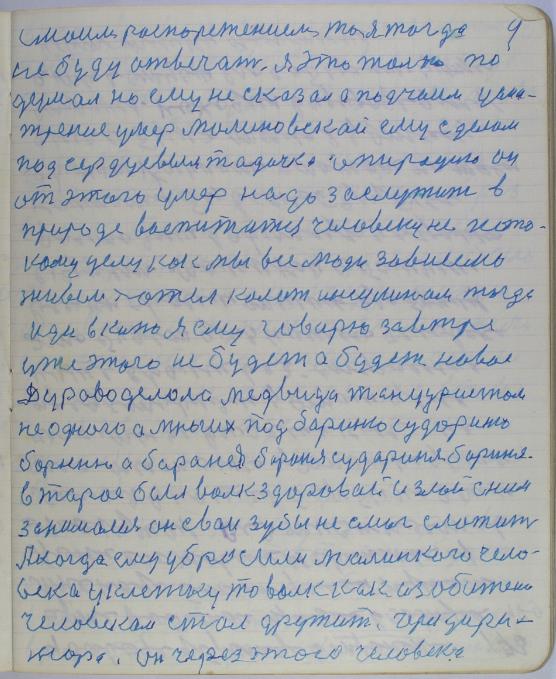 смоим распорежением то я тогда 9
не буду отвечат. я это только по
думал но ему не сказал а подчаим
трения умер малиновскай ему сделали
под сердцевыя он
от этого умер надо заслужит в
природе воспитатця человеку не
кому целу как мы все люди зависемо
живем хотел колот инсулинам тогда
иди в кино я ему говарю завтре
уже этого не будет а будет новое
Дурово делола медвидя танцуристом
не одного а мных под баринo сударинo
а баранея бороня судариня бориня.
втарое был волк здоровай и злой с ним
занимался он сваи зубы не смог сложит
Я когда ему убросили малинкого чело-
века у клетку то волк как изобижени
человекам стал дружит.
он через этого человека